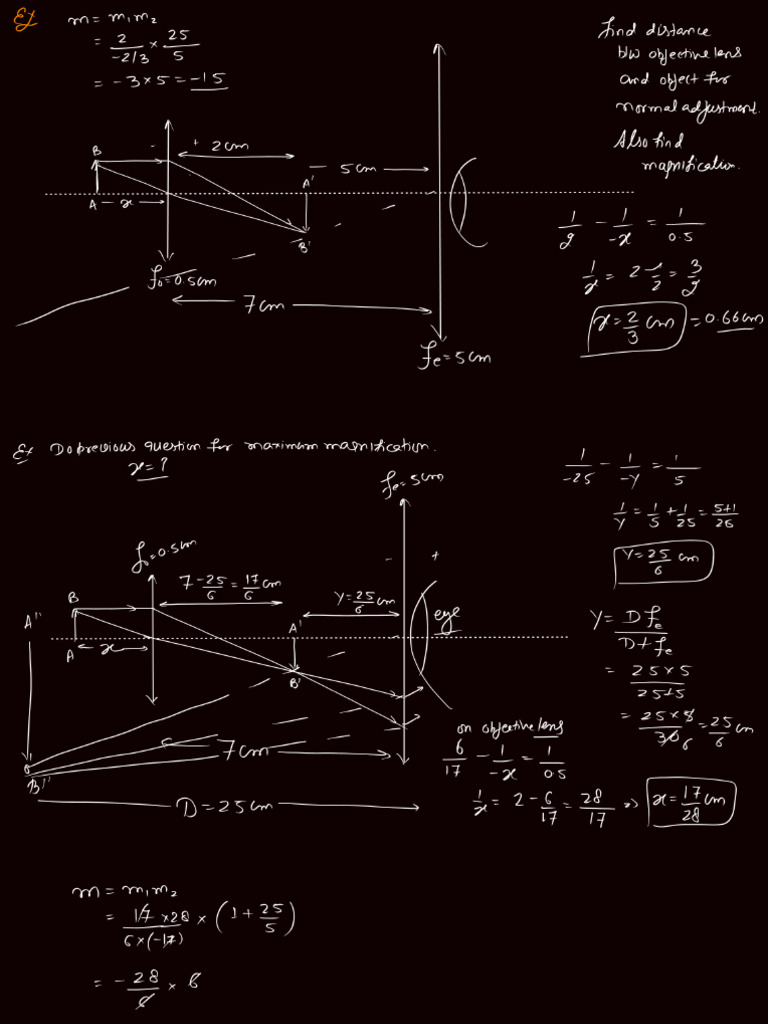 Ex
m = m₁m₂
= 2/(-2/3) × 25/5
= -3×5 = -15
find distance
b/w objective lens
and object for
normal adjustment.
Also find
magnification.
- + 2cm
B
A'
5cm
A - x
B'
f₀=0.5cm
7cm
fe=5cm
1/2 - 1/-x = 1/0.5
1/x = 2-1/2 = 3/2
x = 2/3 cm = 0.66cm
Ex Do previous question for maximum magnification.
x=?
fe=5cm
1/-25 - 1/-y = 1/5
1/y = 1/5 + 1/25 = 5+1/26
y=25/6 cm
f₀=0.5cm
- +
7-25/6 = 17/6 cm
y=25/6 cm
B
A''
A'
eye
A
x
B'
y = D fe/D+fe
= 25×5/25+5
= 25×8/30 6 = 25/6 cm
7cm
B''
D=25cm
on objective lens
6/17 - 1/-x = 1/0.5
1/x = 2-6/17 = 28/17 => x=17/28 cm
m = m₁m₂
= 17×28/6×(-17) × (1+25/5)
= -28/6 × 6